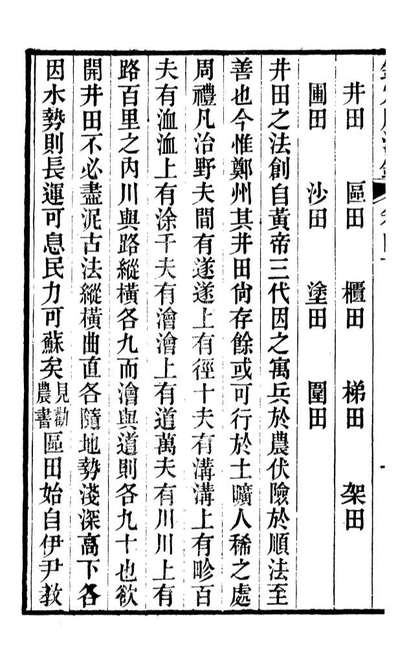 井田　區田　櫃田　梯田　架田
圃田　沙田　塗田　圍田
井田之法創自黃帝三代因之寓兵於農伏險於順法至
善也今惟鄭州其井田尙存餘或可行於土曠人稀之處
周禮凡治野夫間有遂遂上有徑十夫有溝溝上有畛百
夫有洫洫上有涂千夫有澮澮上有道萬夫有川川上有
路百里之內川與路縱橫各九而澮與道則各九十也欲
開井田不必盡泥古法縱橫曲直各隨地勢淺深高下各
因水勢則長運可息民力可蘇矣見勸農書區田始自伊尹敎